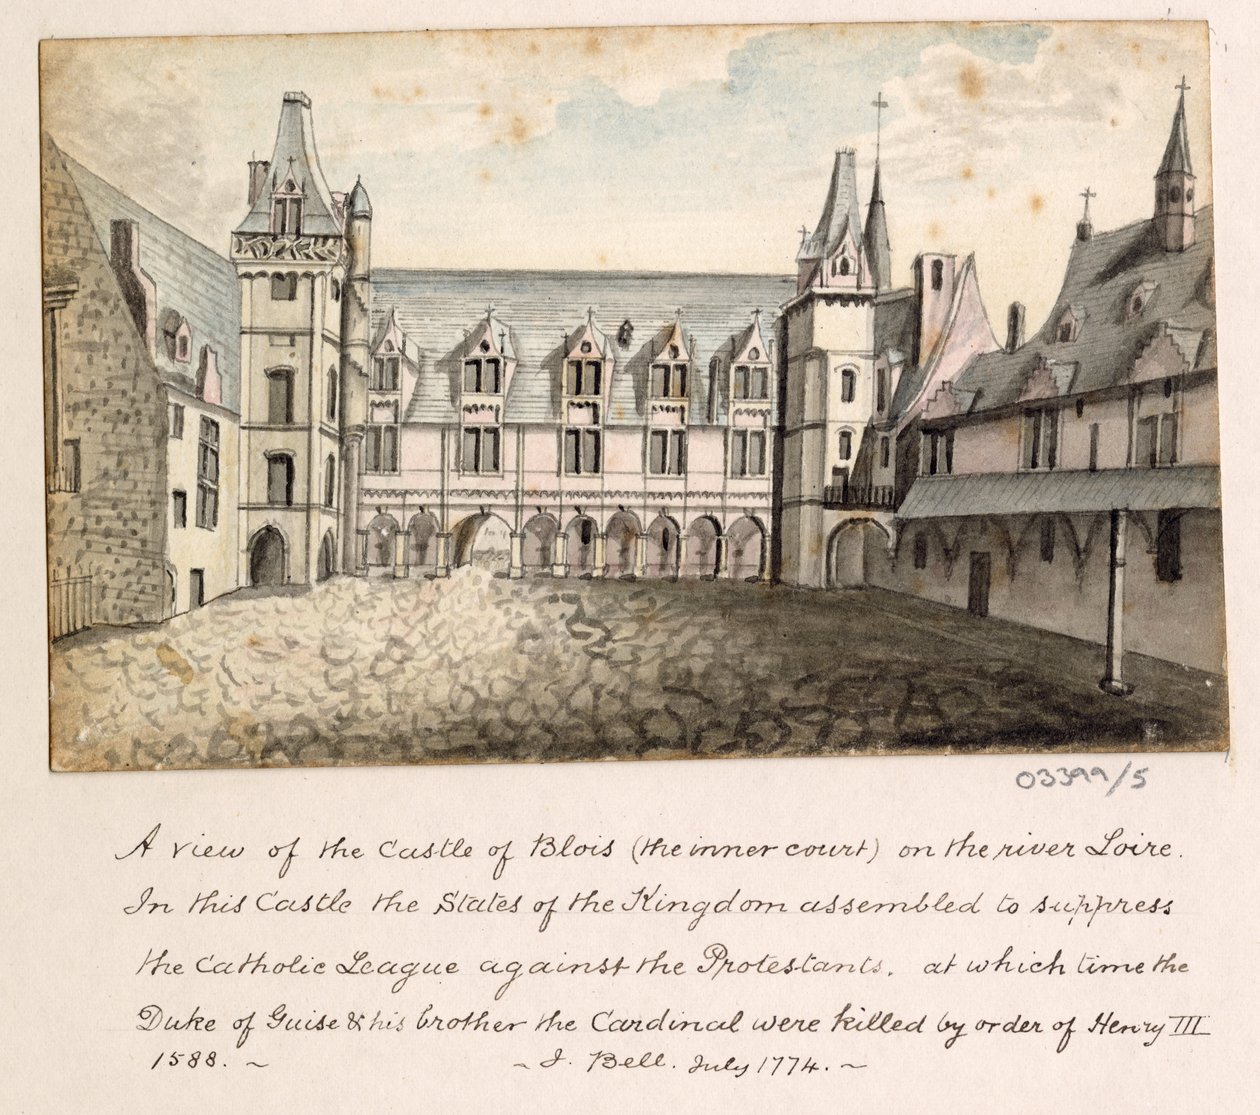 03399/5
A view of the Castle of Blois (the inner court) on the river Loire.
In this Castle the States of the Kingdom assembled to suppress
the Catholic League against the Protestants. at which time the
Duke of Guise & his brother the Cardinal were killed by order of Henry III
1588. ~ ~ J. Bell. July 1774. ~